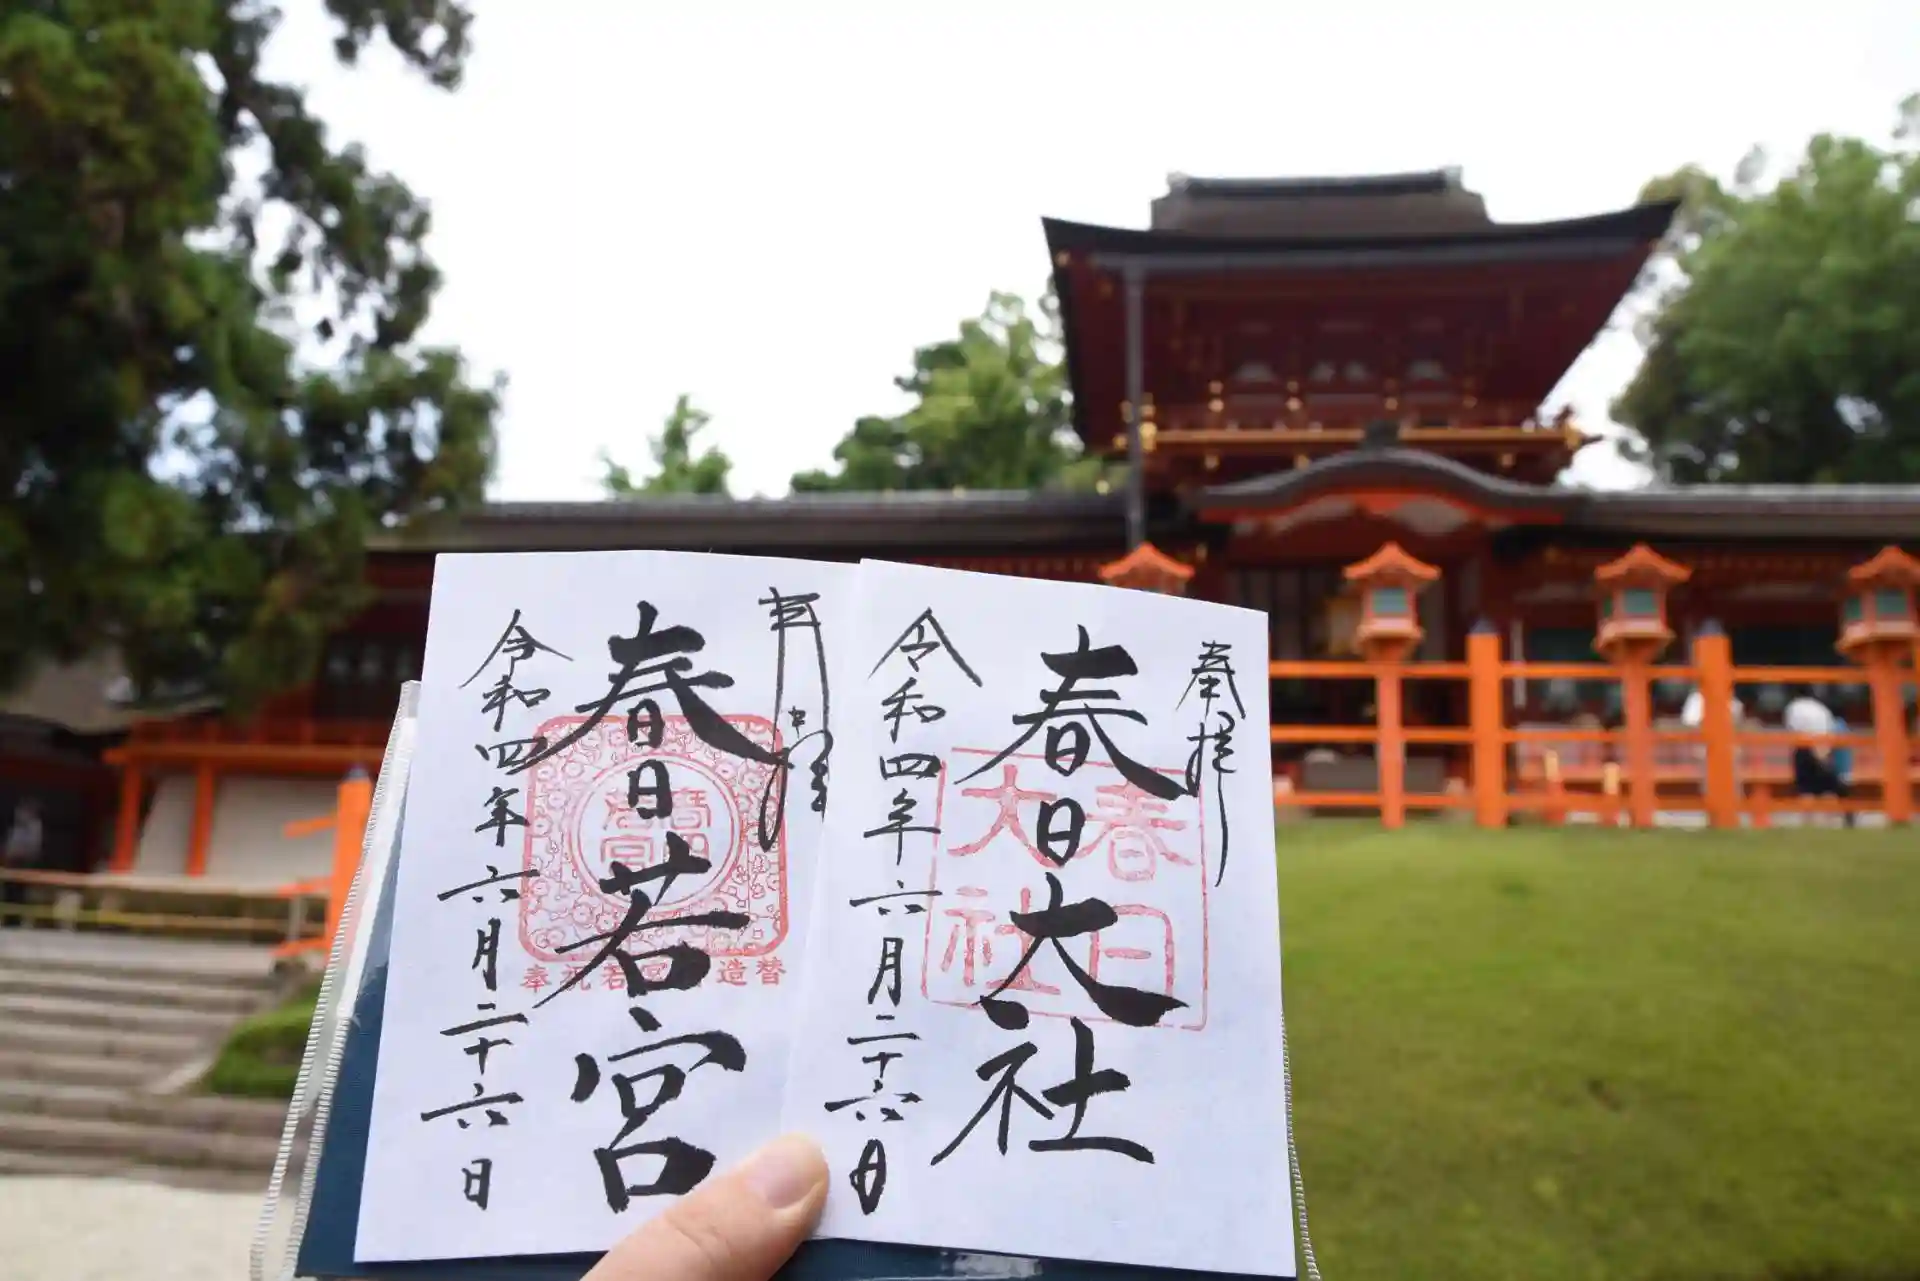 奉拝
春日大社
春日大社
令和四年六月二十六日
春日若宮
奉祝若宮 造替
令和四年六月二十六日